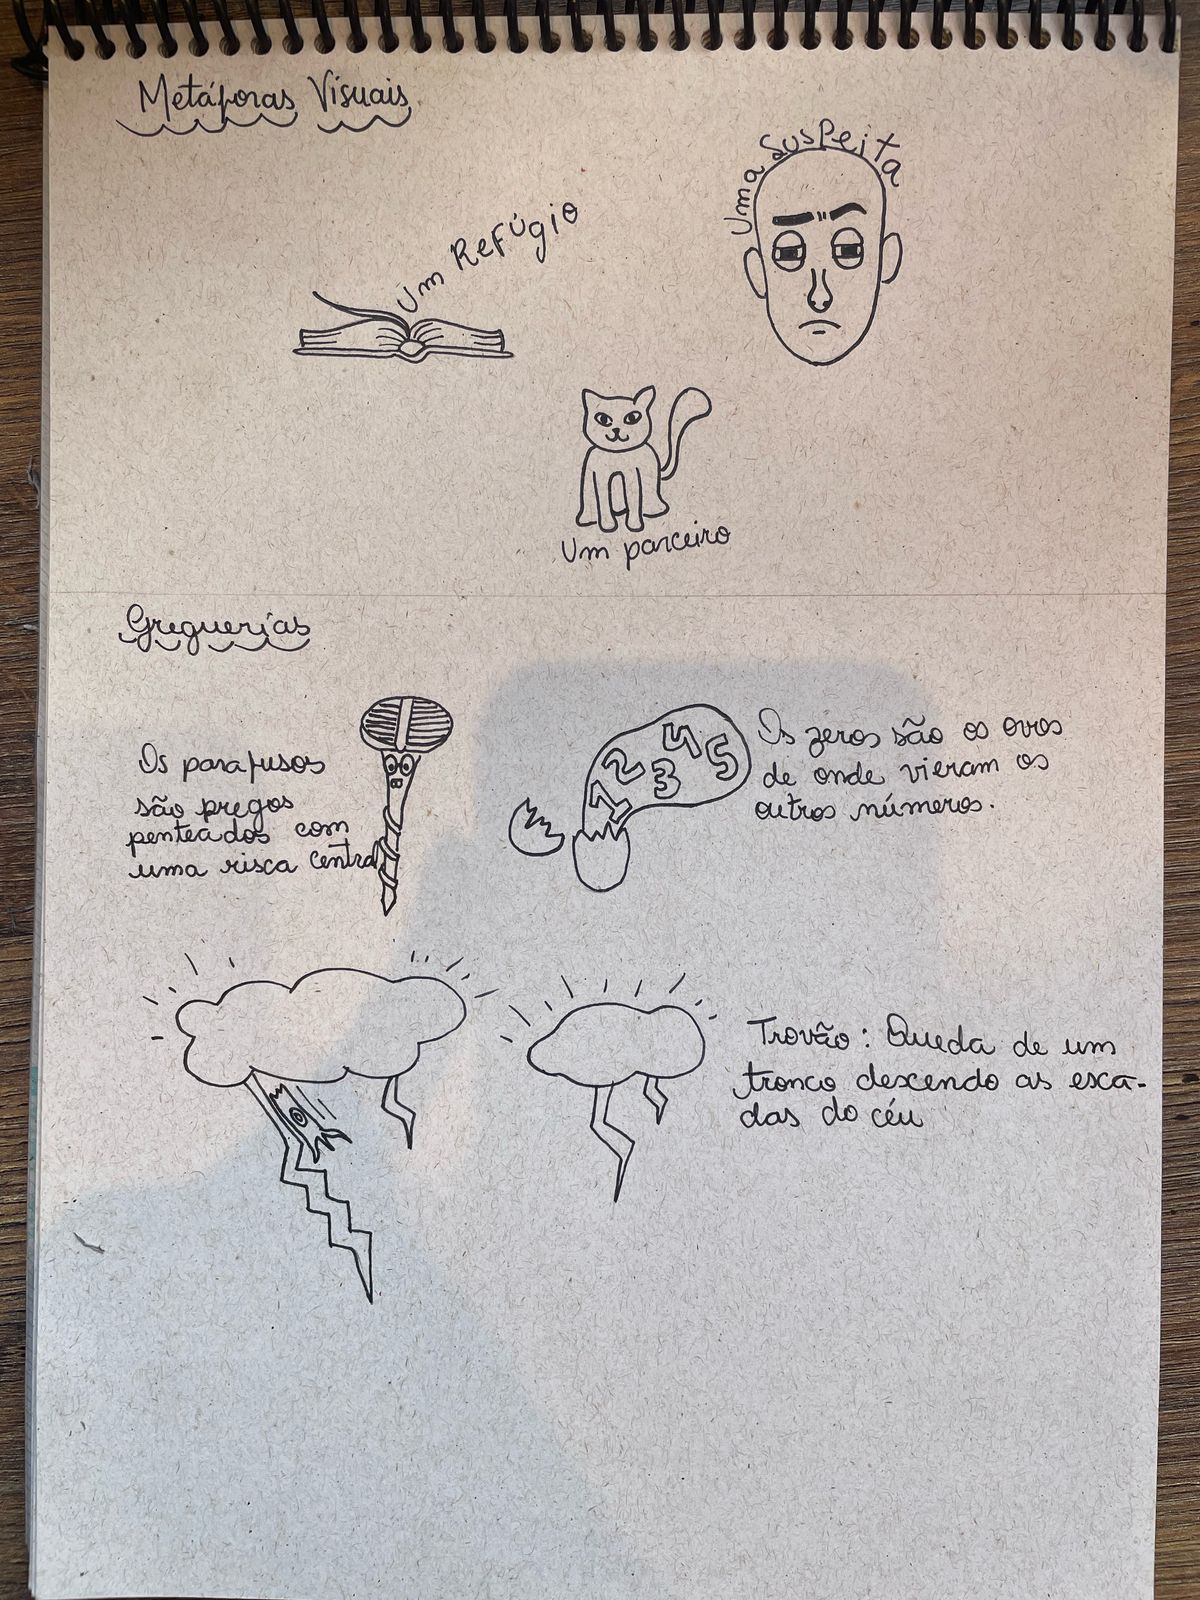 Metáforas Visuais
Uma Suspeita
Um Refúgio
Um parceiro
Greguerias
Os parafusos
são pregos
penteados com
uma risca central
1 2 3 4 5
Os zeros são os ovos
de onde vieram os
outros números.
Trovão: Queda de um
tronco descendo as esca-
das do céu